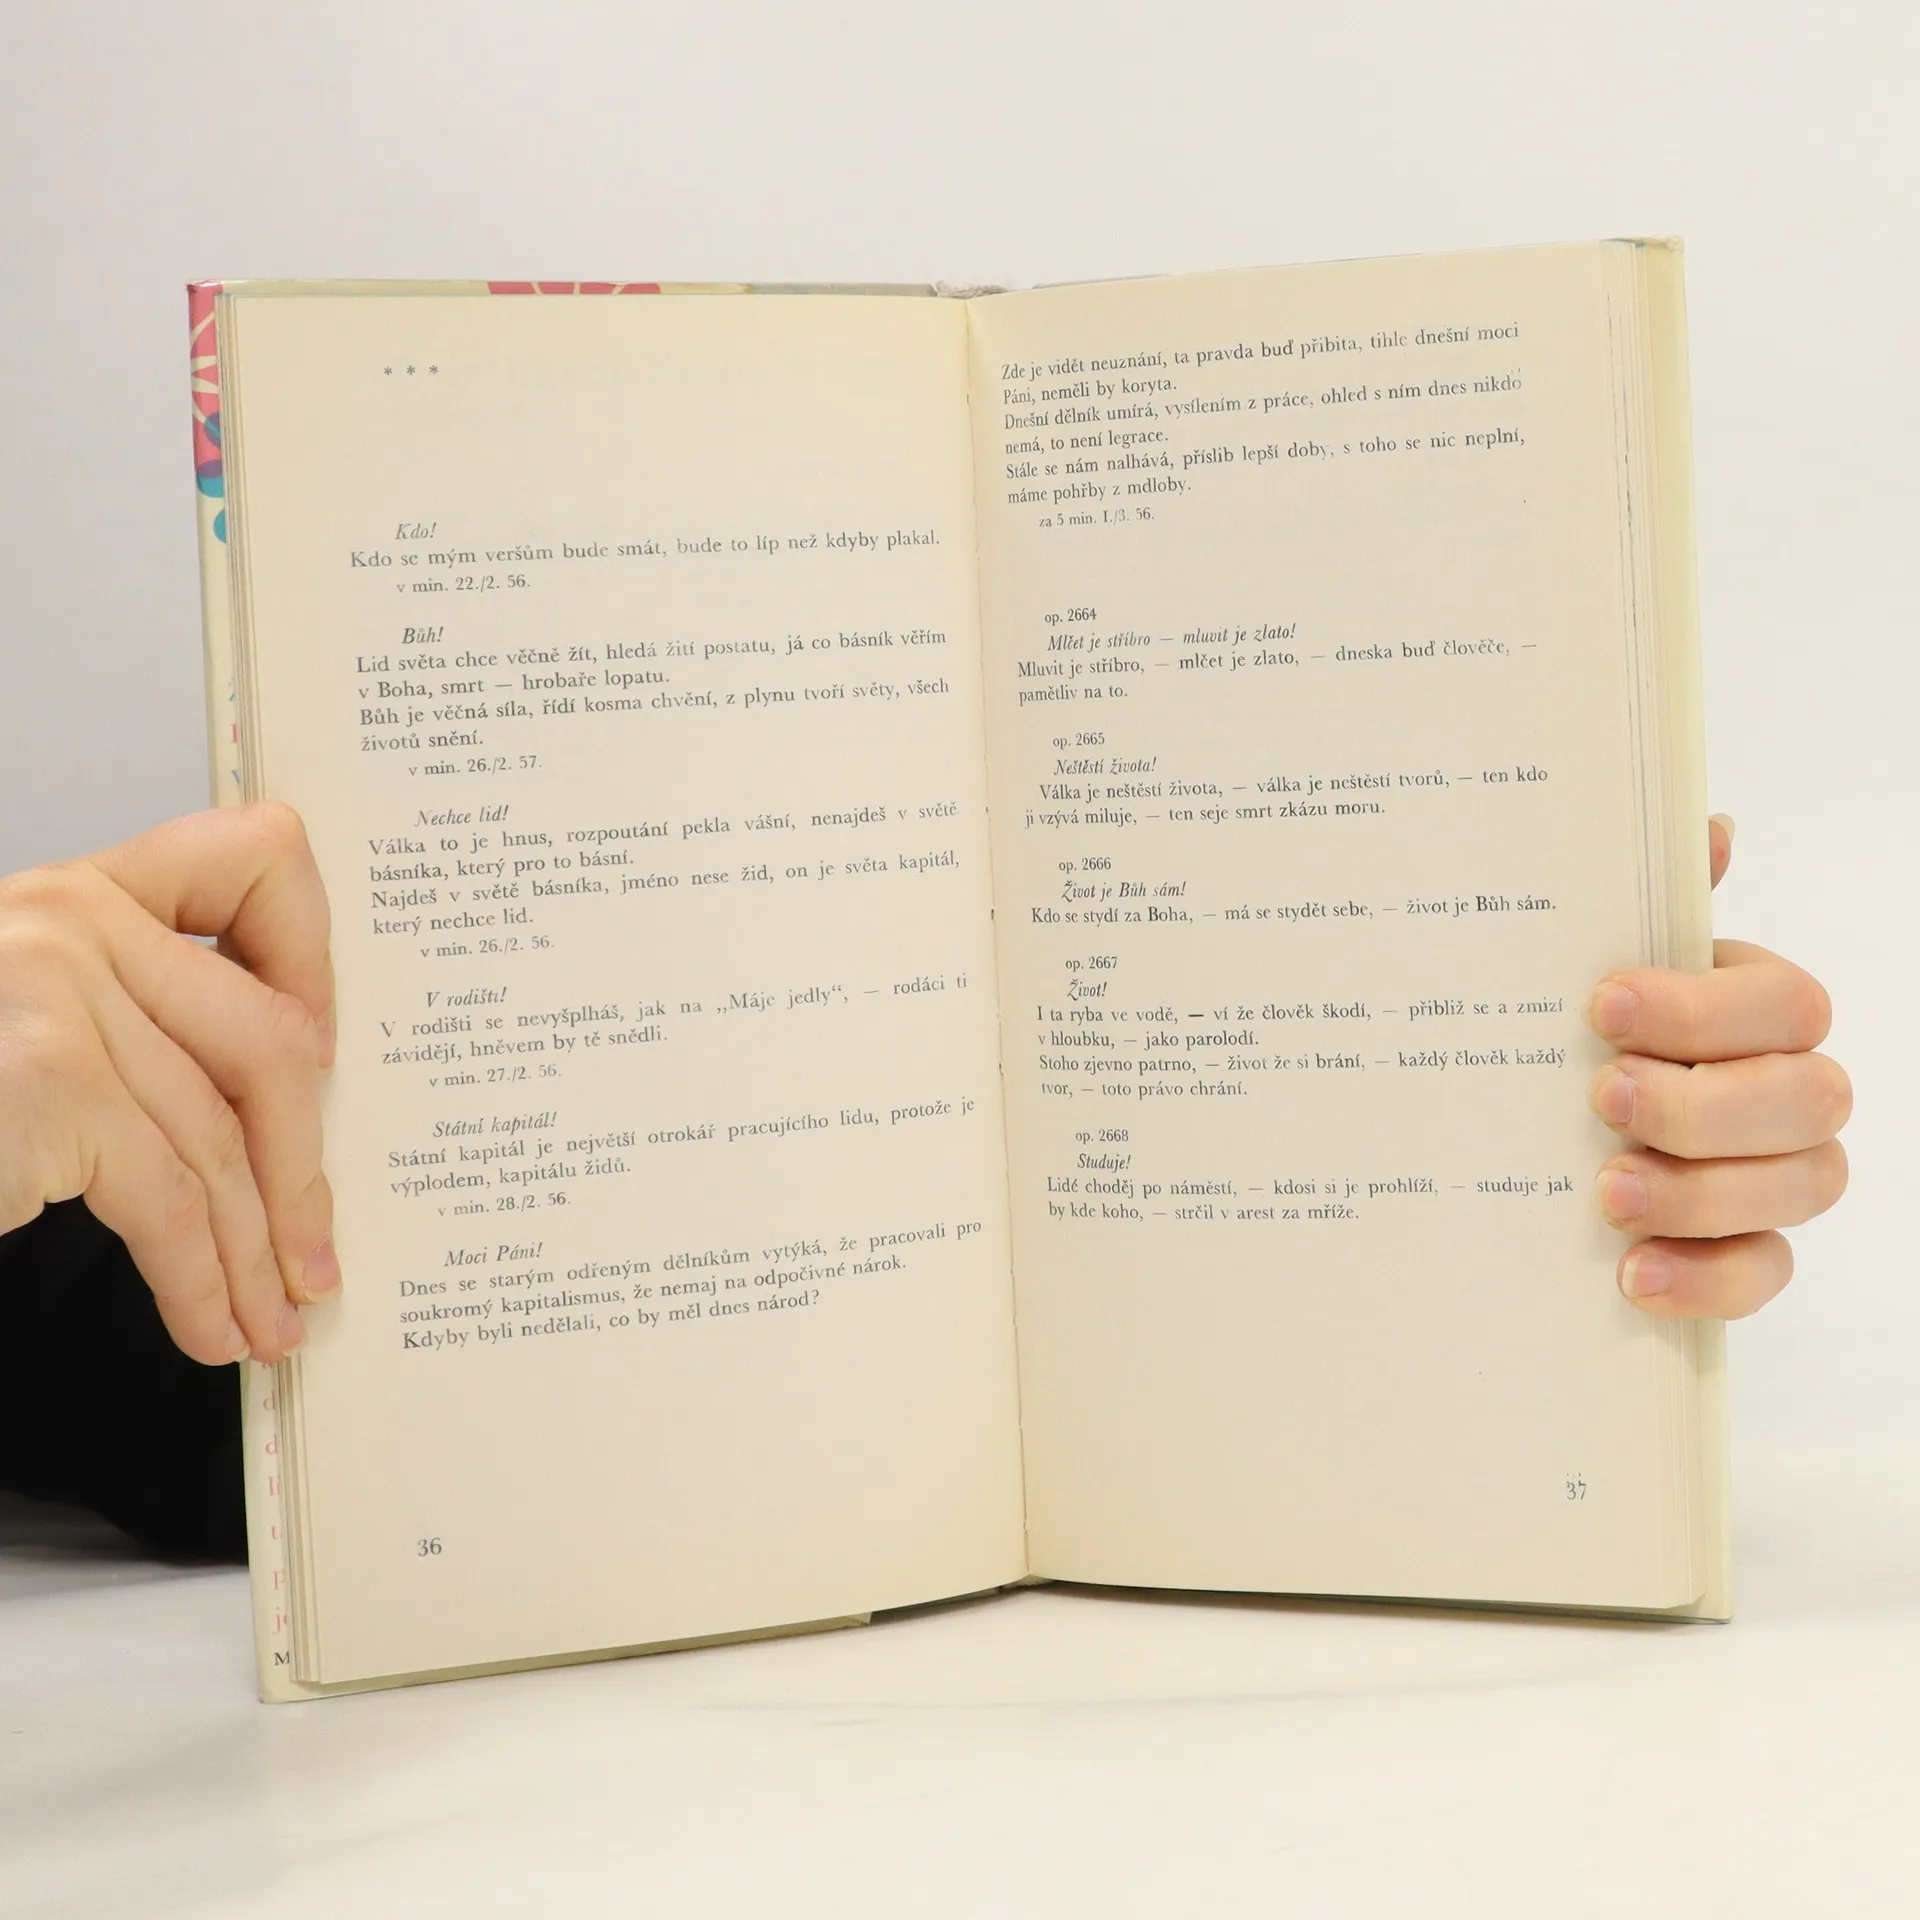 * * *
Kdo!
Kdo se mým veršům bude smát, bude to líp než kdyby plakal.
v min. 22./2. 56.
Bůh!
Lid světa chce věčně žít, hledá žití postatu, já co básník věřím
v Boha, smrt — hrobaře lopatu.
Bůh je věčná síla, řídí kosma chvění, z plynu tvoří světy, všech
životů snění.
v min. 26./2. 57.
Nechce lid!
Válka to je hnus, rozpoutání pekla vášní, nenajdeš v světě
básníka, který pro to básní.
Najdeš v světě básníka, jméno nese žid, on je světa kapitál,
který nechce lid.
v min. 26./2. 56.
V rodišti!
V rodišti se nevyšplháš, jak na „Máje jedly“, — rodáci ti
závidějí, hněvem by tě snědli.
v min. 27./2. 56.
Státní kapitál!
Státní kapitál je největší otrokář pracujícího lidu, protože je
výplodem, kapitálu židů.
v min. 28./2. 56.
Moci Páni!
Dnes se starým odřeným dělníkům vytýká, že pracovali pro
soukromý kapitalismus, že nemaj na odpočivné nárok.
Kdyby byli nedělali, co by měl dnes národ?
36
Zde je vidět neuznání, ta pravda buď přibita, tihle dnešní moci
Páni, neměli by koryta.
Dnešní dělník umírá, vysílením z práce, ohled s ním dnes nikdo
nemá, to není legrace.
Stále se nám nalhává, příslib lepší doby, s toho se nic neplní,
máme pohřby z mdloby.
za 5 min. I./3. 56.
op. 2664
Mlčet je stříbro — mluvit je zlato!
Mluvit je stříbro, — mlčet je zlato, — dneska buď člověče, —
pamětliv na to.
op. 2665
Neštěstí života!
Válka je neštěstí života, — válka je neštěstí tvorů, — ten kdo
ji vzývá miluje, — ten seje smrt zkázu moru.
op. 2666
Život je Bůh sám!
Kdo se stydí za Boha, — má se stydět sebe, — život je Bůh sám.
op. 2667
Život!
I ta ryba ve vodě, — ví že člověk škodí, — přibliž se a zmizí
v hloubku, — jako parolodí.
Stoho zjevno patrno, — život že si brání, — každý člověk každý
tvor, — toto právo chrání.
op. 2668
Studuje!
Lidé choděj po náměstí, — kdosi si je prohlíží, — studuje jak
by kde koho, — strčil v arest za mříže.
37